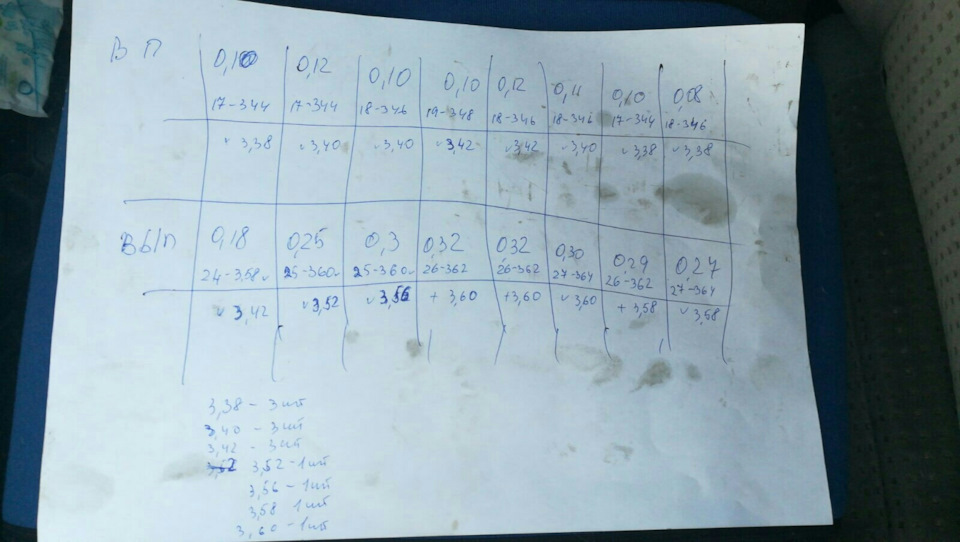 ВП 0,10 0,12 0,10 0,10 0,12 0,11 0,10 0,08
17-344 17-344 18-346 19-348 18-346 18-346 17-344 18-346
v 3,38 v 3,40 v 3,40 v 3,42 v 3,42 v 3,40 v 3,38 v 3,38
ВЫП 0,18 0,25 0,3 0,32 0,32 0,30 0,29 0,27
24-358v 25-360v 25-360v 26-362 26-362 27-364 26-362 27-364
v 3,42 v 3,52 v 3,56 + 3,60 +3,60 v 3,60 + 3,58 v 3,58
3,38 - 3 шт
3,40 - 3 шт
3,42 - 3 шт
3,52 - 1 шт
3,56 - 1 шт
3,58 1 шт
3,60 - 1 шт